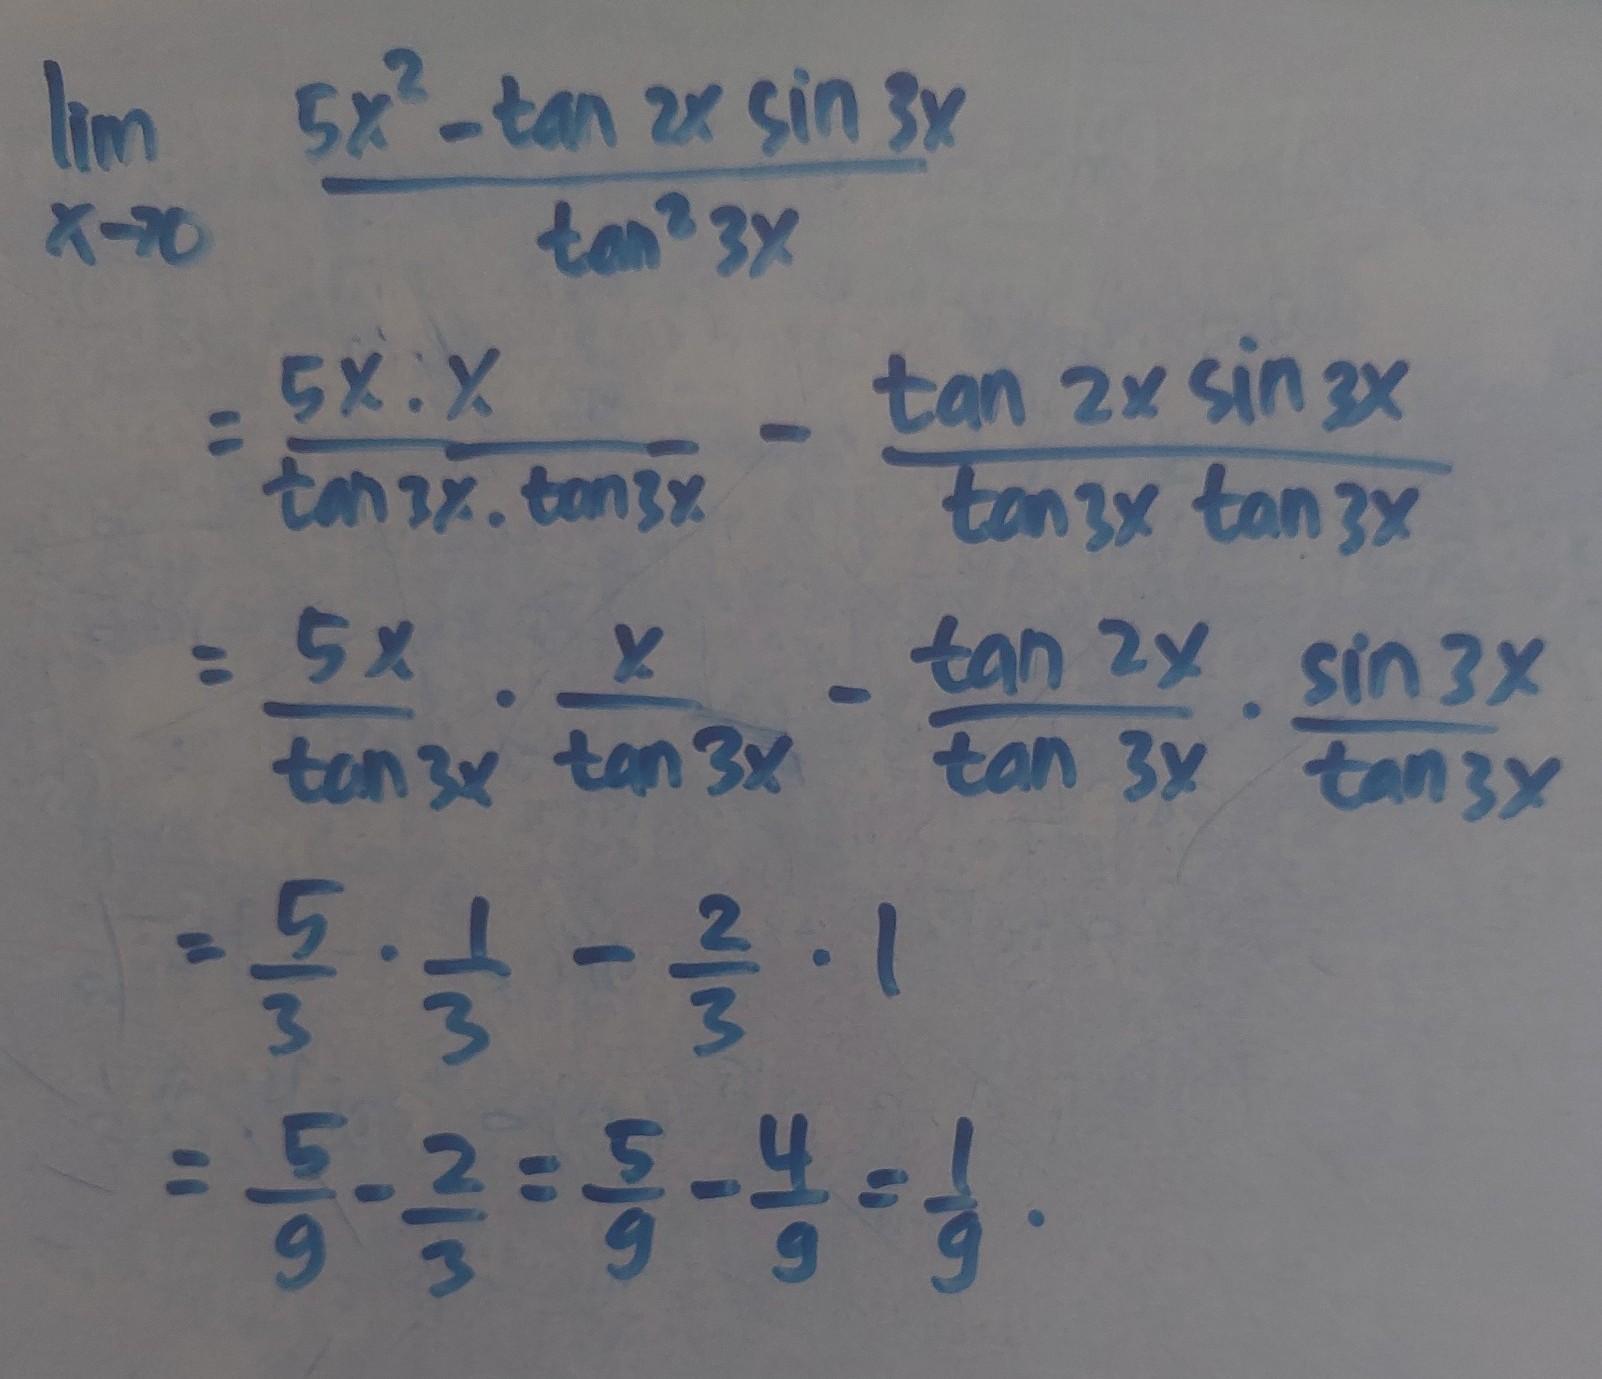 lim x→0 (5x² - tan 2x sin 3x) / (tan² 3x)
= (5x . x) / (tan 3x . tan 3x) - (tan 2x sin 3x) / (tan 3x tan 3x)
= 5x / tan 3x · x / tan 3x - tan 2x / tan 3x · sin 3x / tan 3x
= 5/3 · 1/3 - 2/3 · 1
= 5/9 - 2/3 = 5/9 - 4/9 = 1/9 .